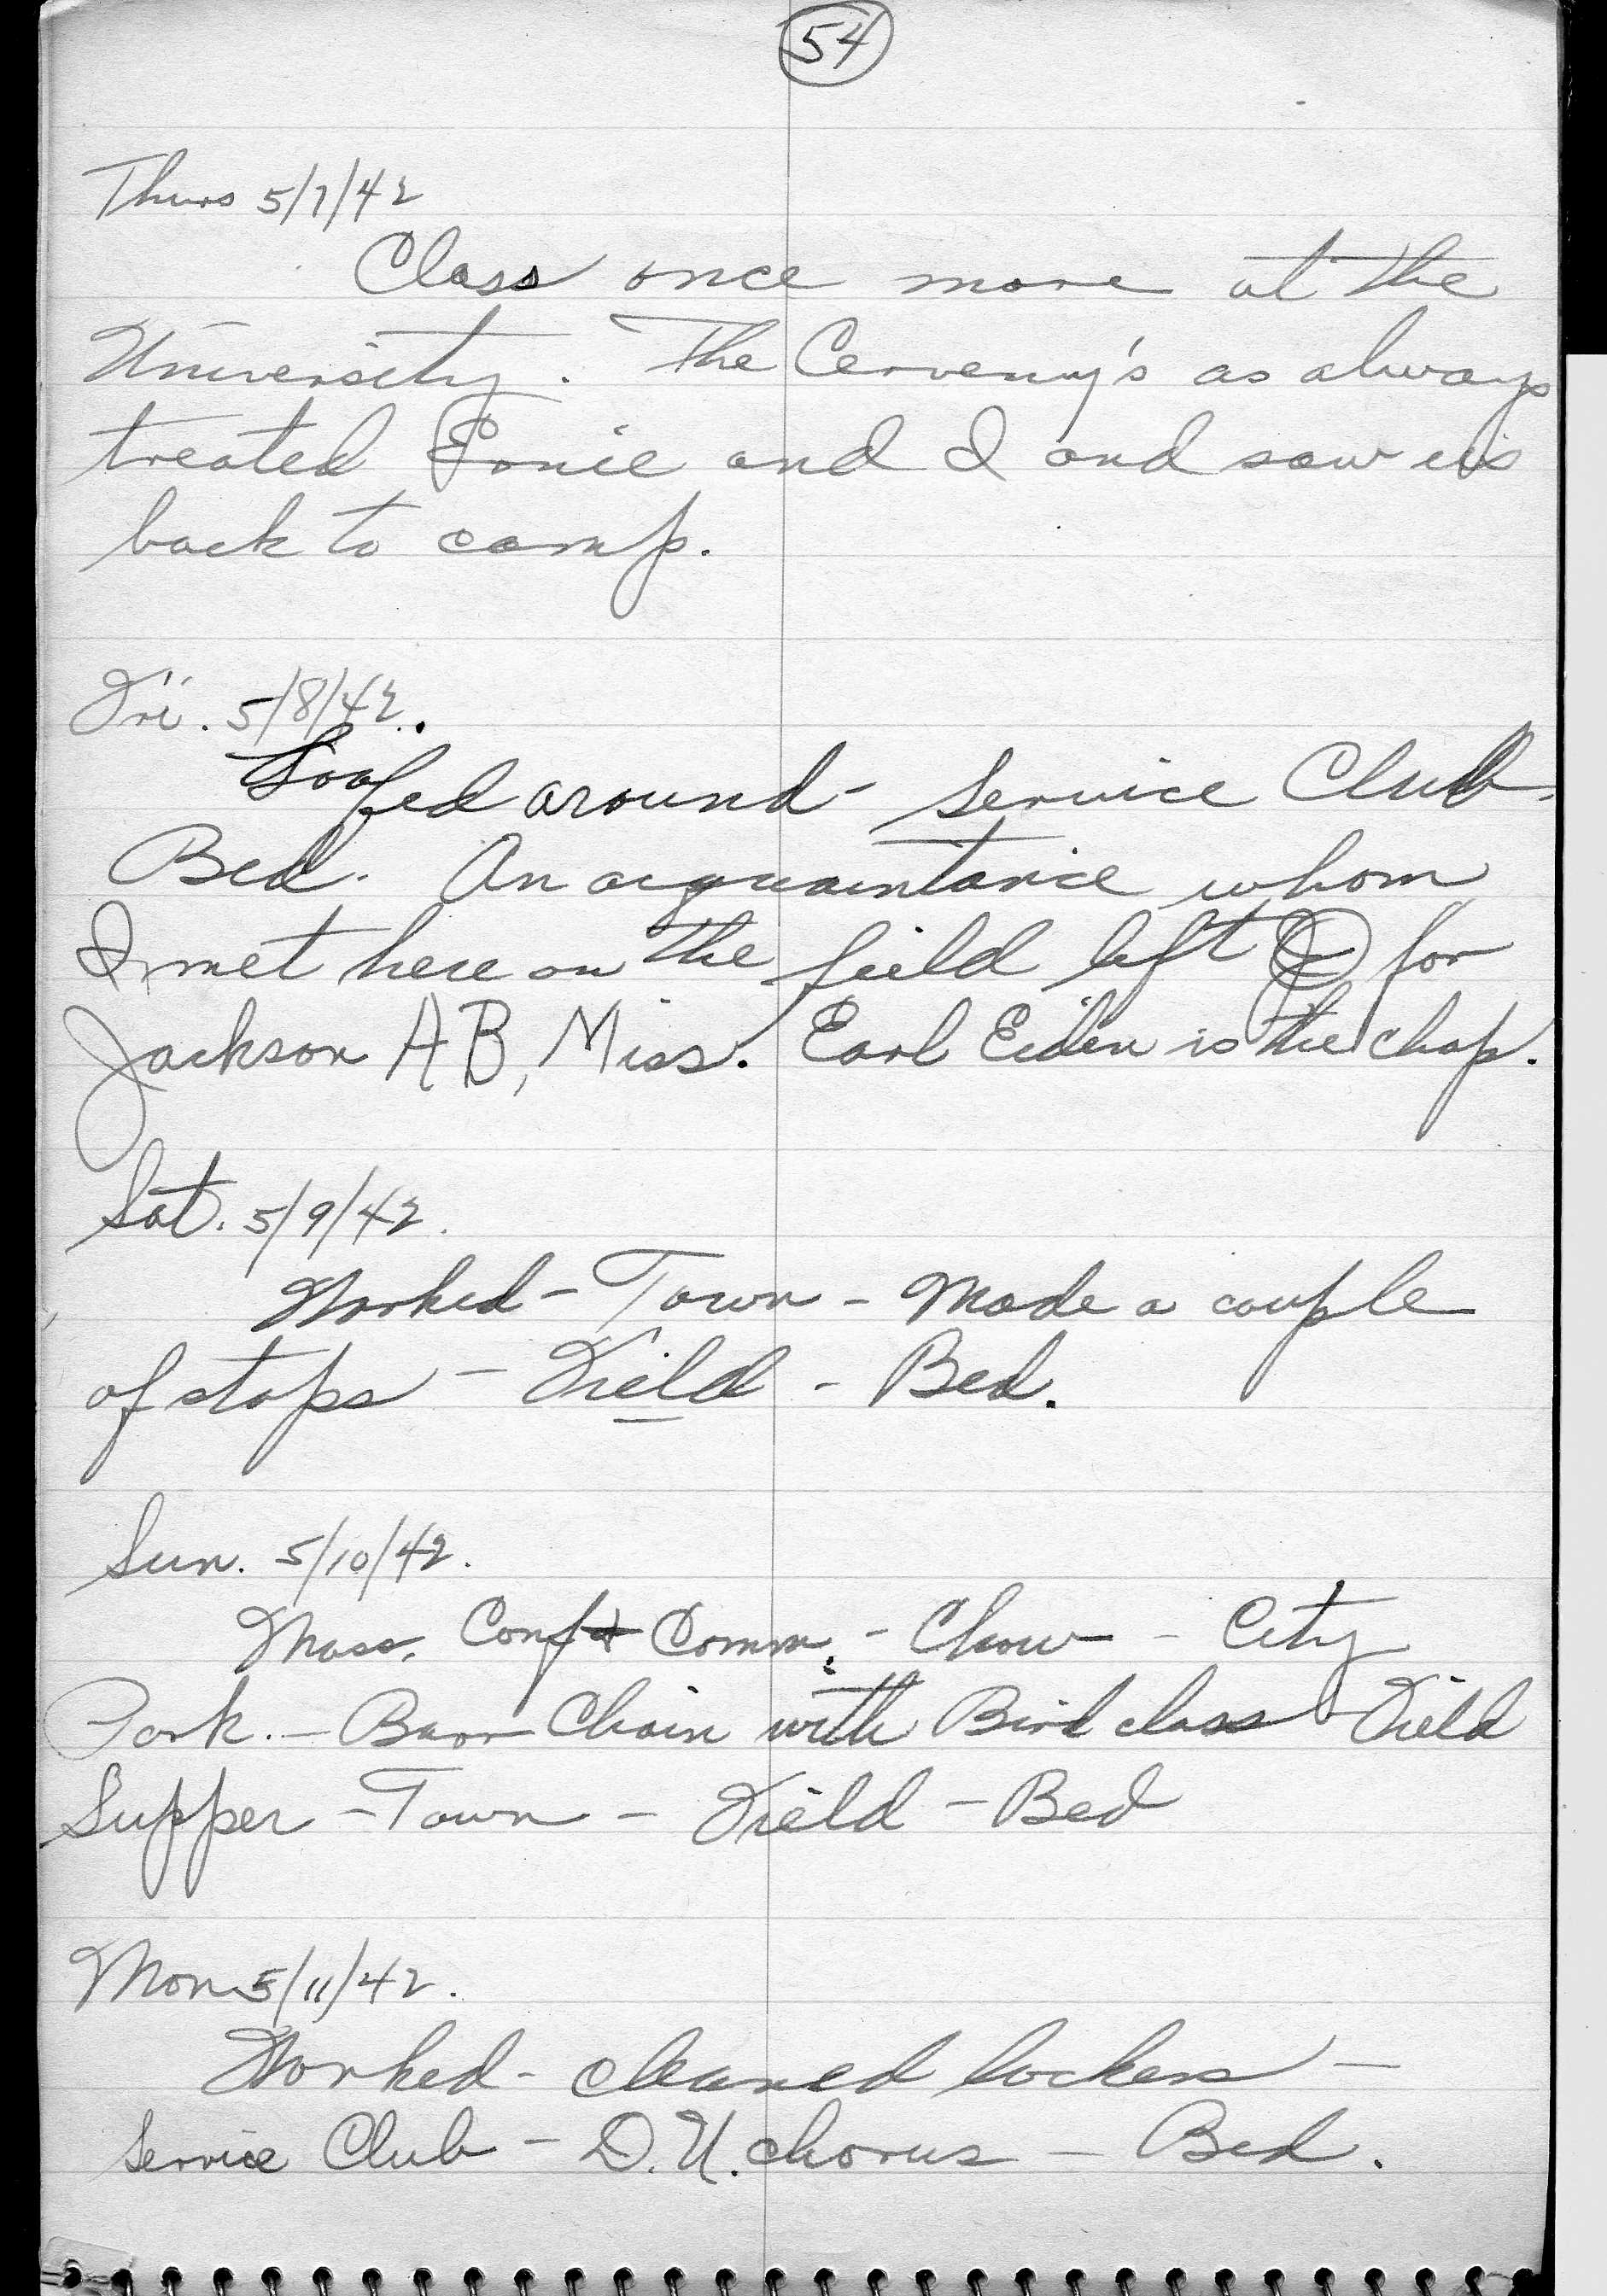 54
Thurs 5/7/42
Class once more at the
University. The Cerveny's as always
treated Ernie and I and saw us
back to camp.
Fri. 5/8/42.
Loafed around - Service Club.
Bed. An acquaintance whom
I met here on the field left for
Jackson AB, Miss. Earl Eiden is the chap.
Sat. 5/9/42.
Worked - Town - Made a couple
of stops - Field - Bed.
Sun. 5/10/42.
Mass, Conf & Comm. - Chow - City
Park. - Barr Chain with Bird class - Field
Supper - Town - Field - Bed
Mon 5/11/42.
Worked - cleaned lockers -
Service Club - D.U. chorus - Bed.